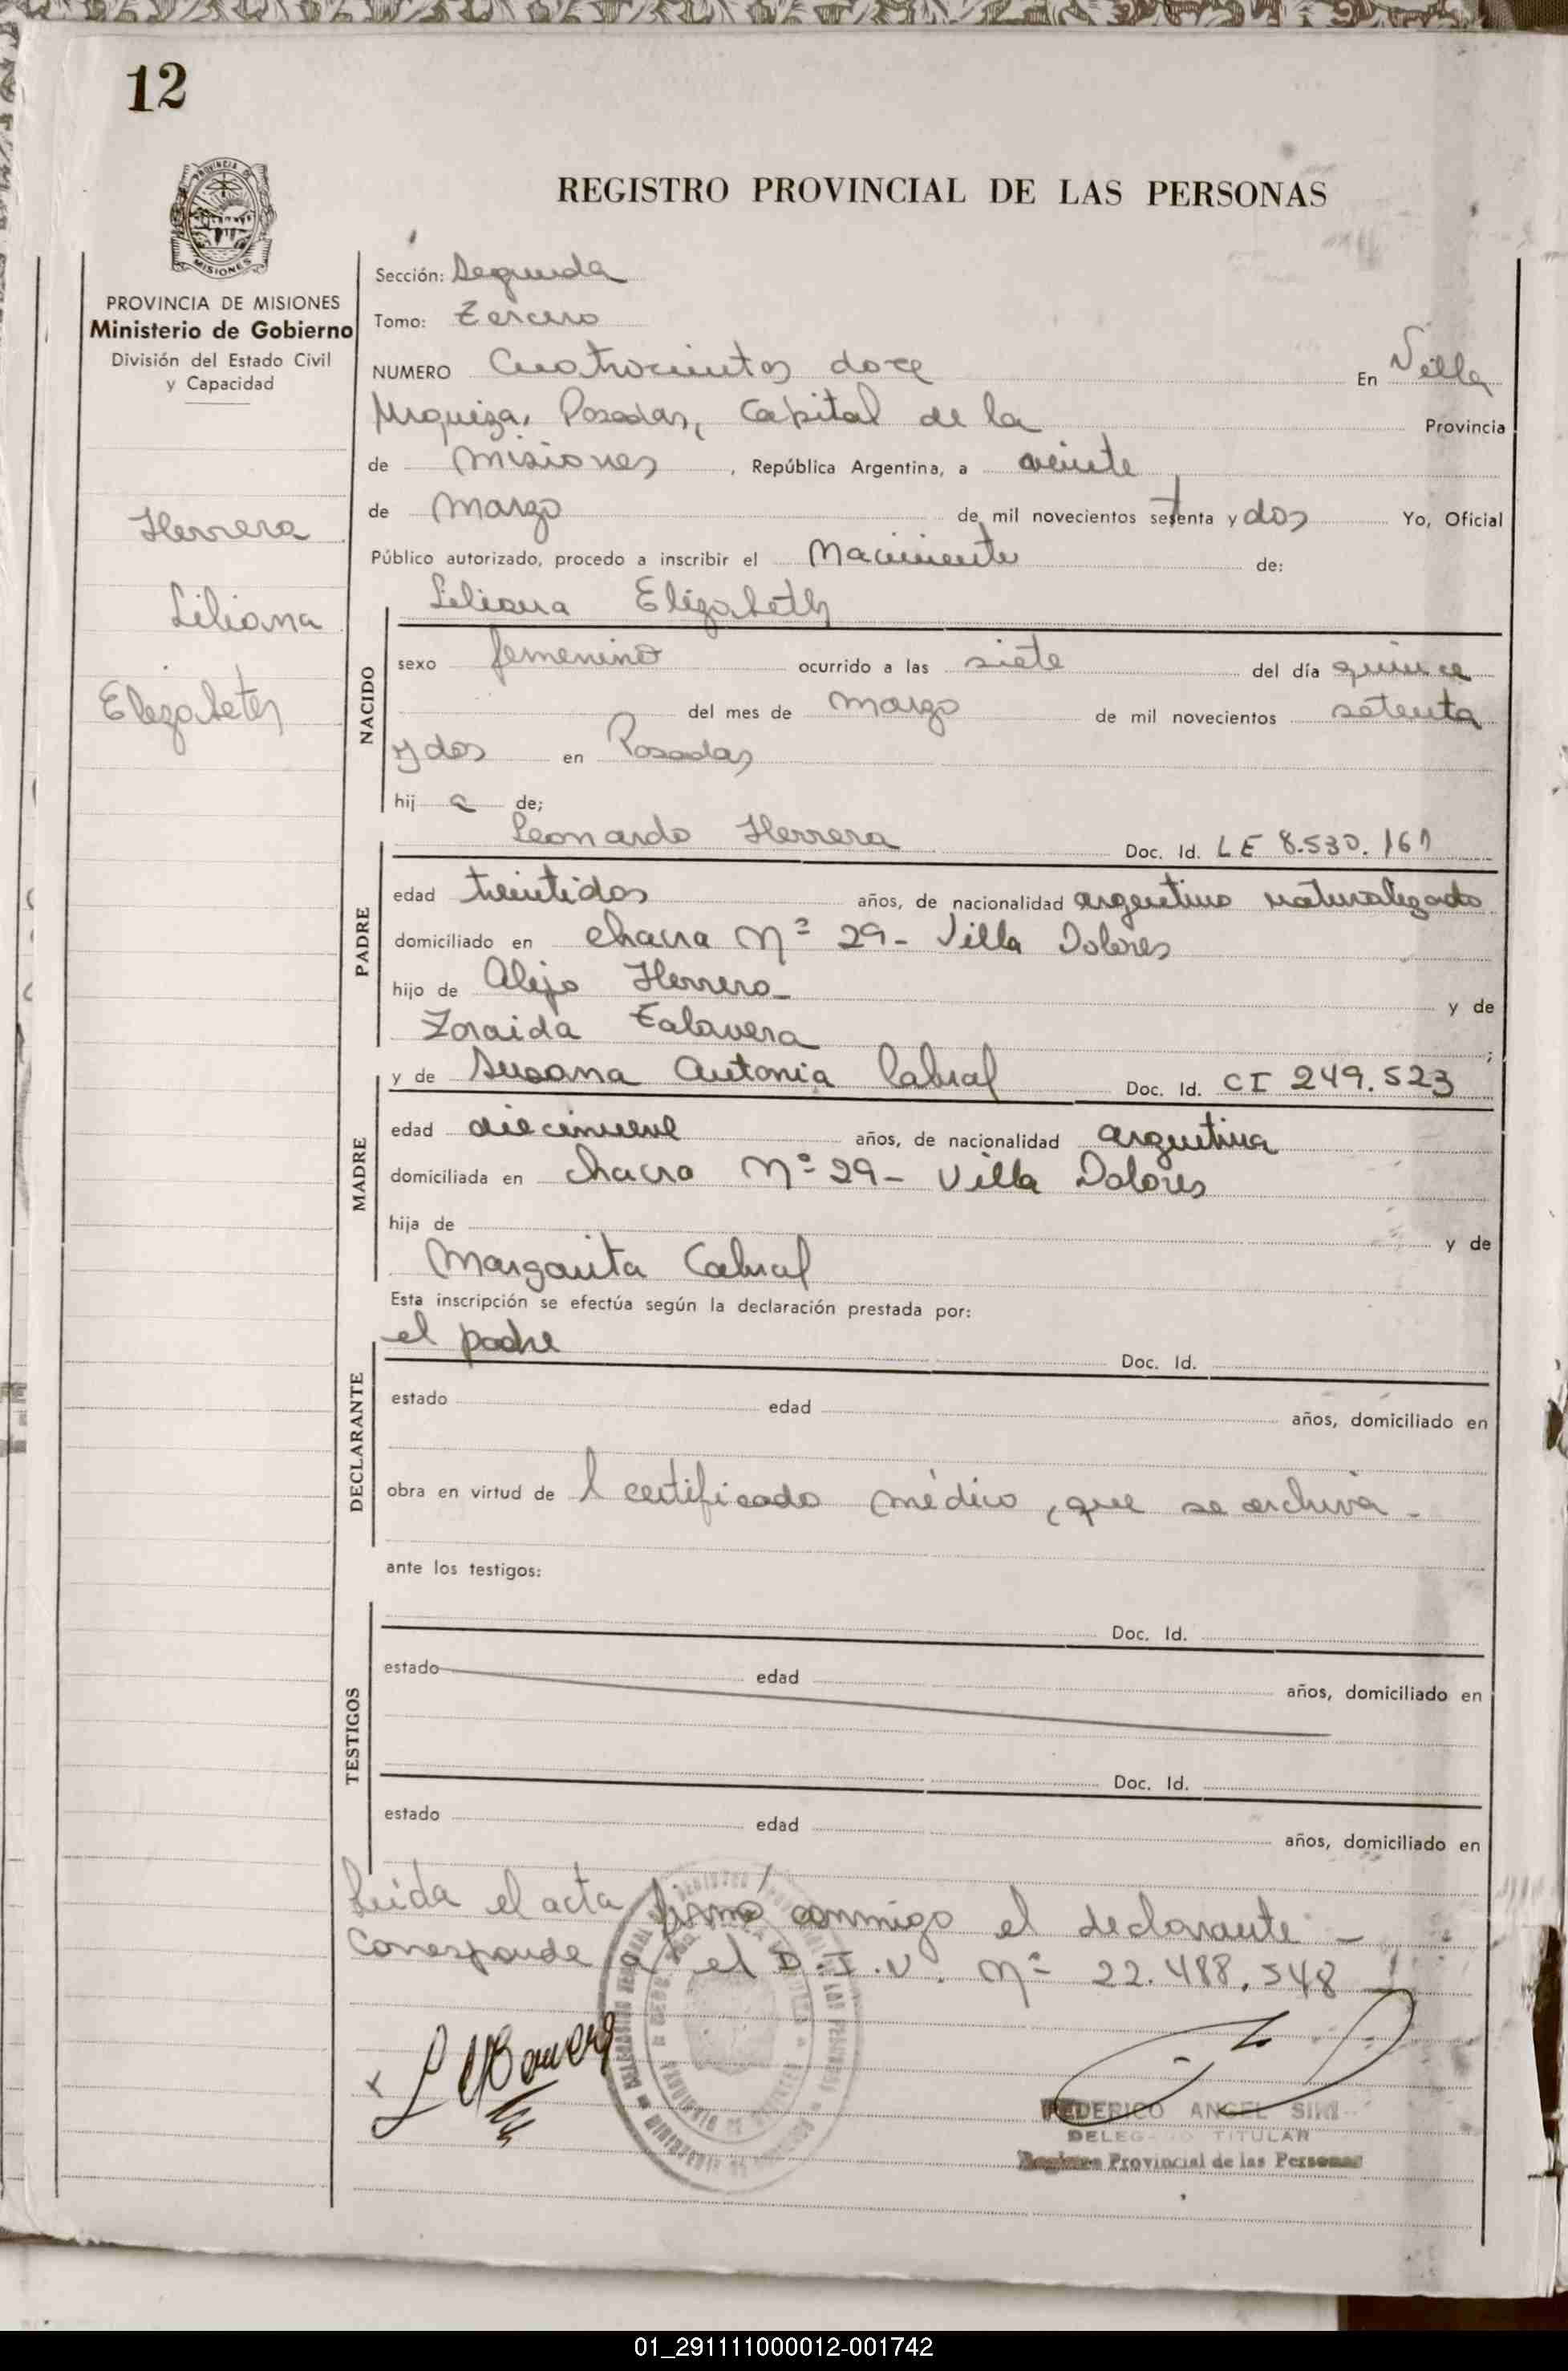 12
PROVINCIA DE
MISIONES
PROVINCIA DE MISIONES
Ministerio de Gobierno
División del Estado Civil
y Capacidad
Herrera
Liliana
Elizabeth
REGISTRO PROVINCIAL DE LAS PERSONAS
Sección: Segunda
Tomo: Tercero
NUMERO Cuatrocientos doce En Villa
Urquiza, Posadas, Capital de la Provincia
de Misiones, República Argentina, a veinte
de Marzo de mil novecientos setenta y dos Yo, Oficial
Público autorizado, procedo a inscribir el Nacimiento de:
Liliana Elizabeth
NACIDO
sexo femenino ocurrido a las siete del día quince
del mes de Marzo de mil novecientos setenta
y dos en Posadas
hij a de;
Leonardo Herrera Doc. Id. LE 8.530.161
PADRE
edad treintidos años, de nacionalidad argentino naturalizado
domiciliado en chacra Nº 29- Villa Dolores
hijo de Alejo Herrera- y de
Zoraida Talavera;
y de Susana Antonia Cabral Doc. Id. CI 249.523
MADRE
edad diecinueve años, de nacionalidad argentina
domiciliada en chacra Nº 29- Villa Dolores
hija de y de
Margarita Cabral
Esta inscripción se efectúa según la declaración prestada por:
el padre Doc. Id.
DECLARANTE
estado edad años, domiciliado en
obra en virtud de l certificado médico, que se archiva-
ante los testigos:
Doc. Id.
TESTIGOS
estado edad años, domiciliado en
Doc. Id.
estado edad años, domiciliado en
Leída el acta firmó conmigo el declarante-
Corresponde a el D.I.U. Nº 22.488.548
FEDERICO ANGEL
DELEGADO TITULAR
Registro Provincial de las Personas
01_291111000012-001742